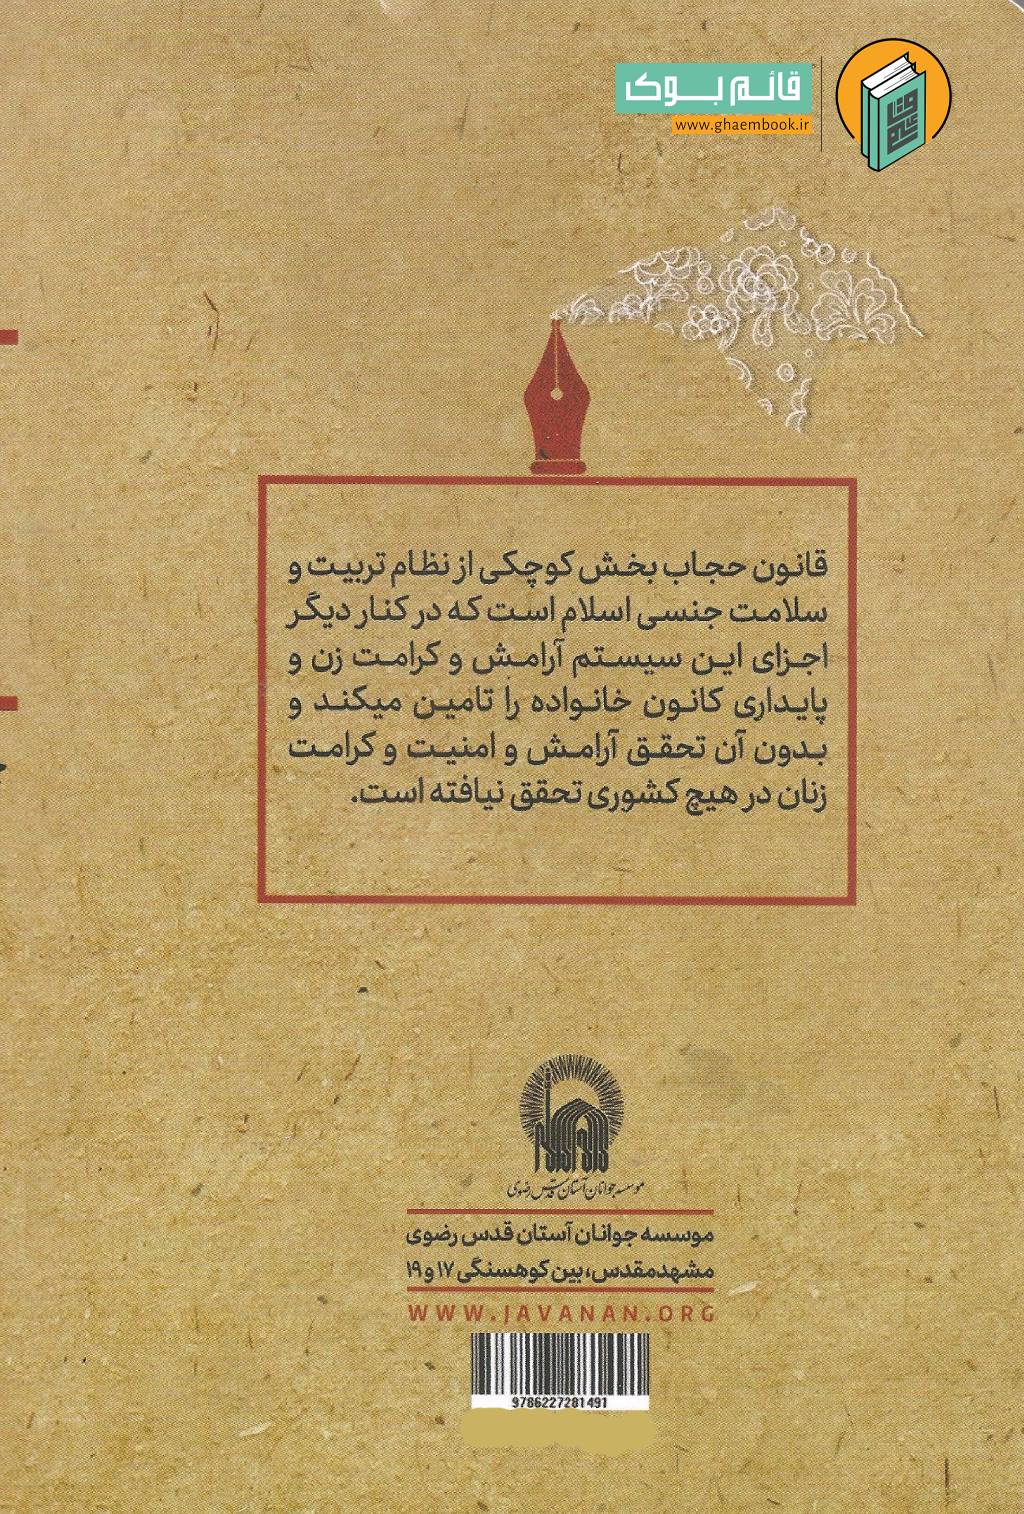 قائم بوک
www.ghaembook.ir
قانون حجاب بخش کوچکی از نظام تربیت و
سلامت جنسی اسلام است که در کنار دیگر
اجزای این سیستم آرامش و کرامت زن و
پایداری کانون خانواده را تامین میکند و
بدون آن تحقق آرامش و امنیت و کرامت
زنان در هیچ کشوری تحقق نیافته است.
موسسه جوانان آستان قدس رضوی
موسسه جوانان آستان قدس رضوی
مشهدمقدس، بین کوهسنگی ۱۷ و ۱۹
WWW.JAVANAN.ORG
9786227281491